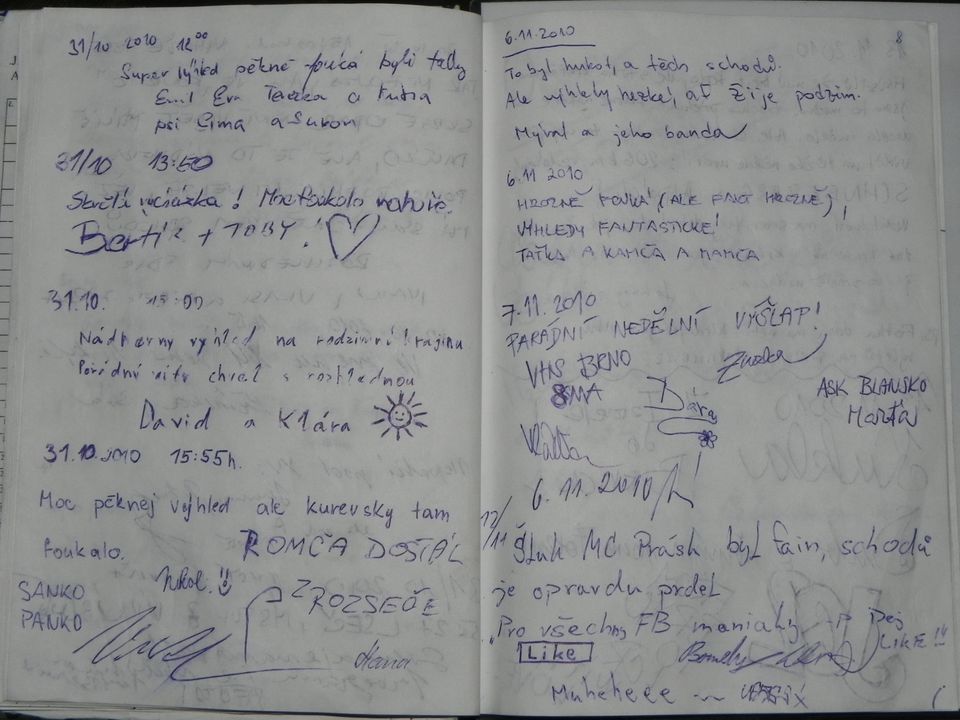 31/10 2010 12⁰⁰
Super výhled pěkně fouká byli tady
Emil Eva Terezka a Kuba
psi a
31/10 13:50
Skvělá procházka! Moc foukalo nahoře.
Bertík + TOBY!
31.10. 15:00
Nádherný výhled na rodzinní krajinu
chval s rozhlednou
David a Klára
31.10.2010 15:55h.
Moc pěknej výhled ale kurevsky tam
foukalo. ROMČA DOŠTÁL
Nikol!!
Z ROZSEČE
SANKO
PANKO
Hana
8
6.11.2010
To byl hukot, a těch schodů.
Ale výhledy hezké, ať žije podzim.
Mýval a jeho banda
6.11 2010
HROZNĚ FOUKÁ, (ALE FAKT HROZNĚ),
VÝHLEDY FANTASTICKÉ!
TAŤKA A KAMČA A MAMČA
7.11.2010
PARÁDNÍ NEDĚLNÍ VÝŠLAP!
VHS BRNO Zuzka
Dáša
ASK BLANSKO
Marťa
6.11.2010
12/11
Šluk MC Prásk byl fain, schodů
je opravdu prdel
"Pro všechny FB maniaky → Dej
LIKE!"
Like
Muheheee